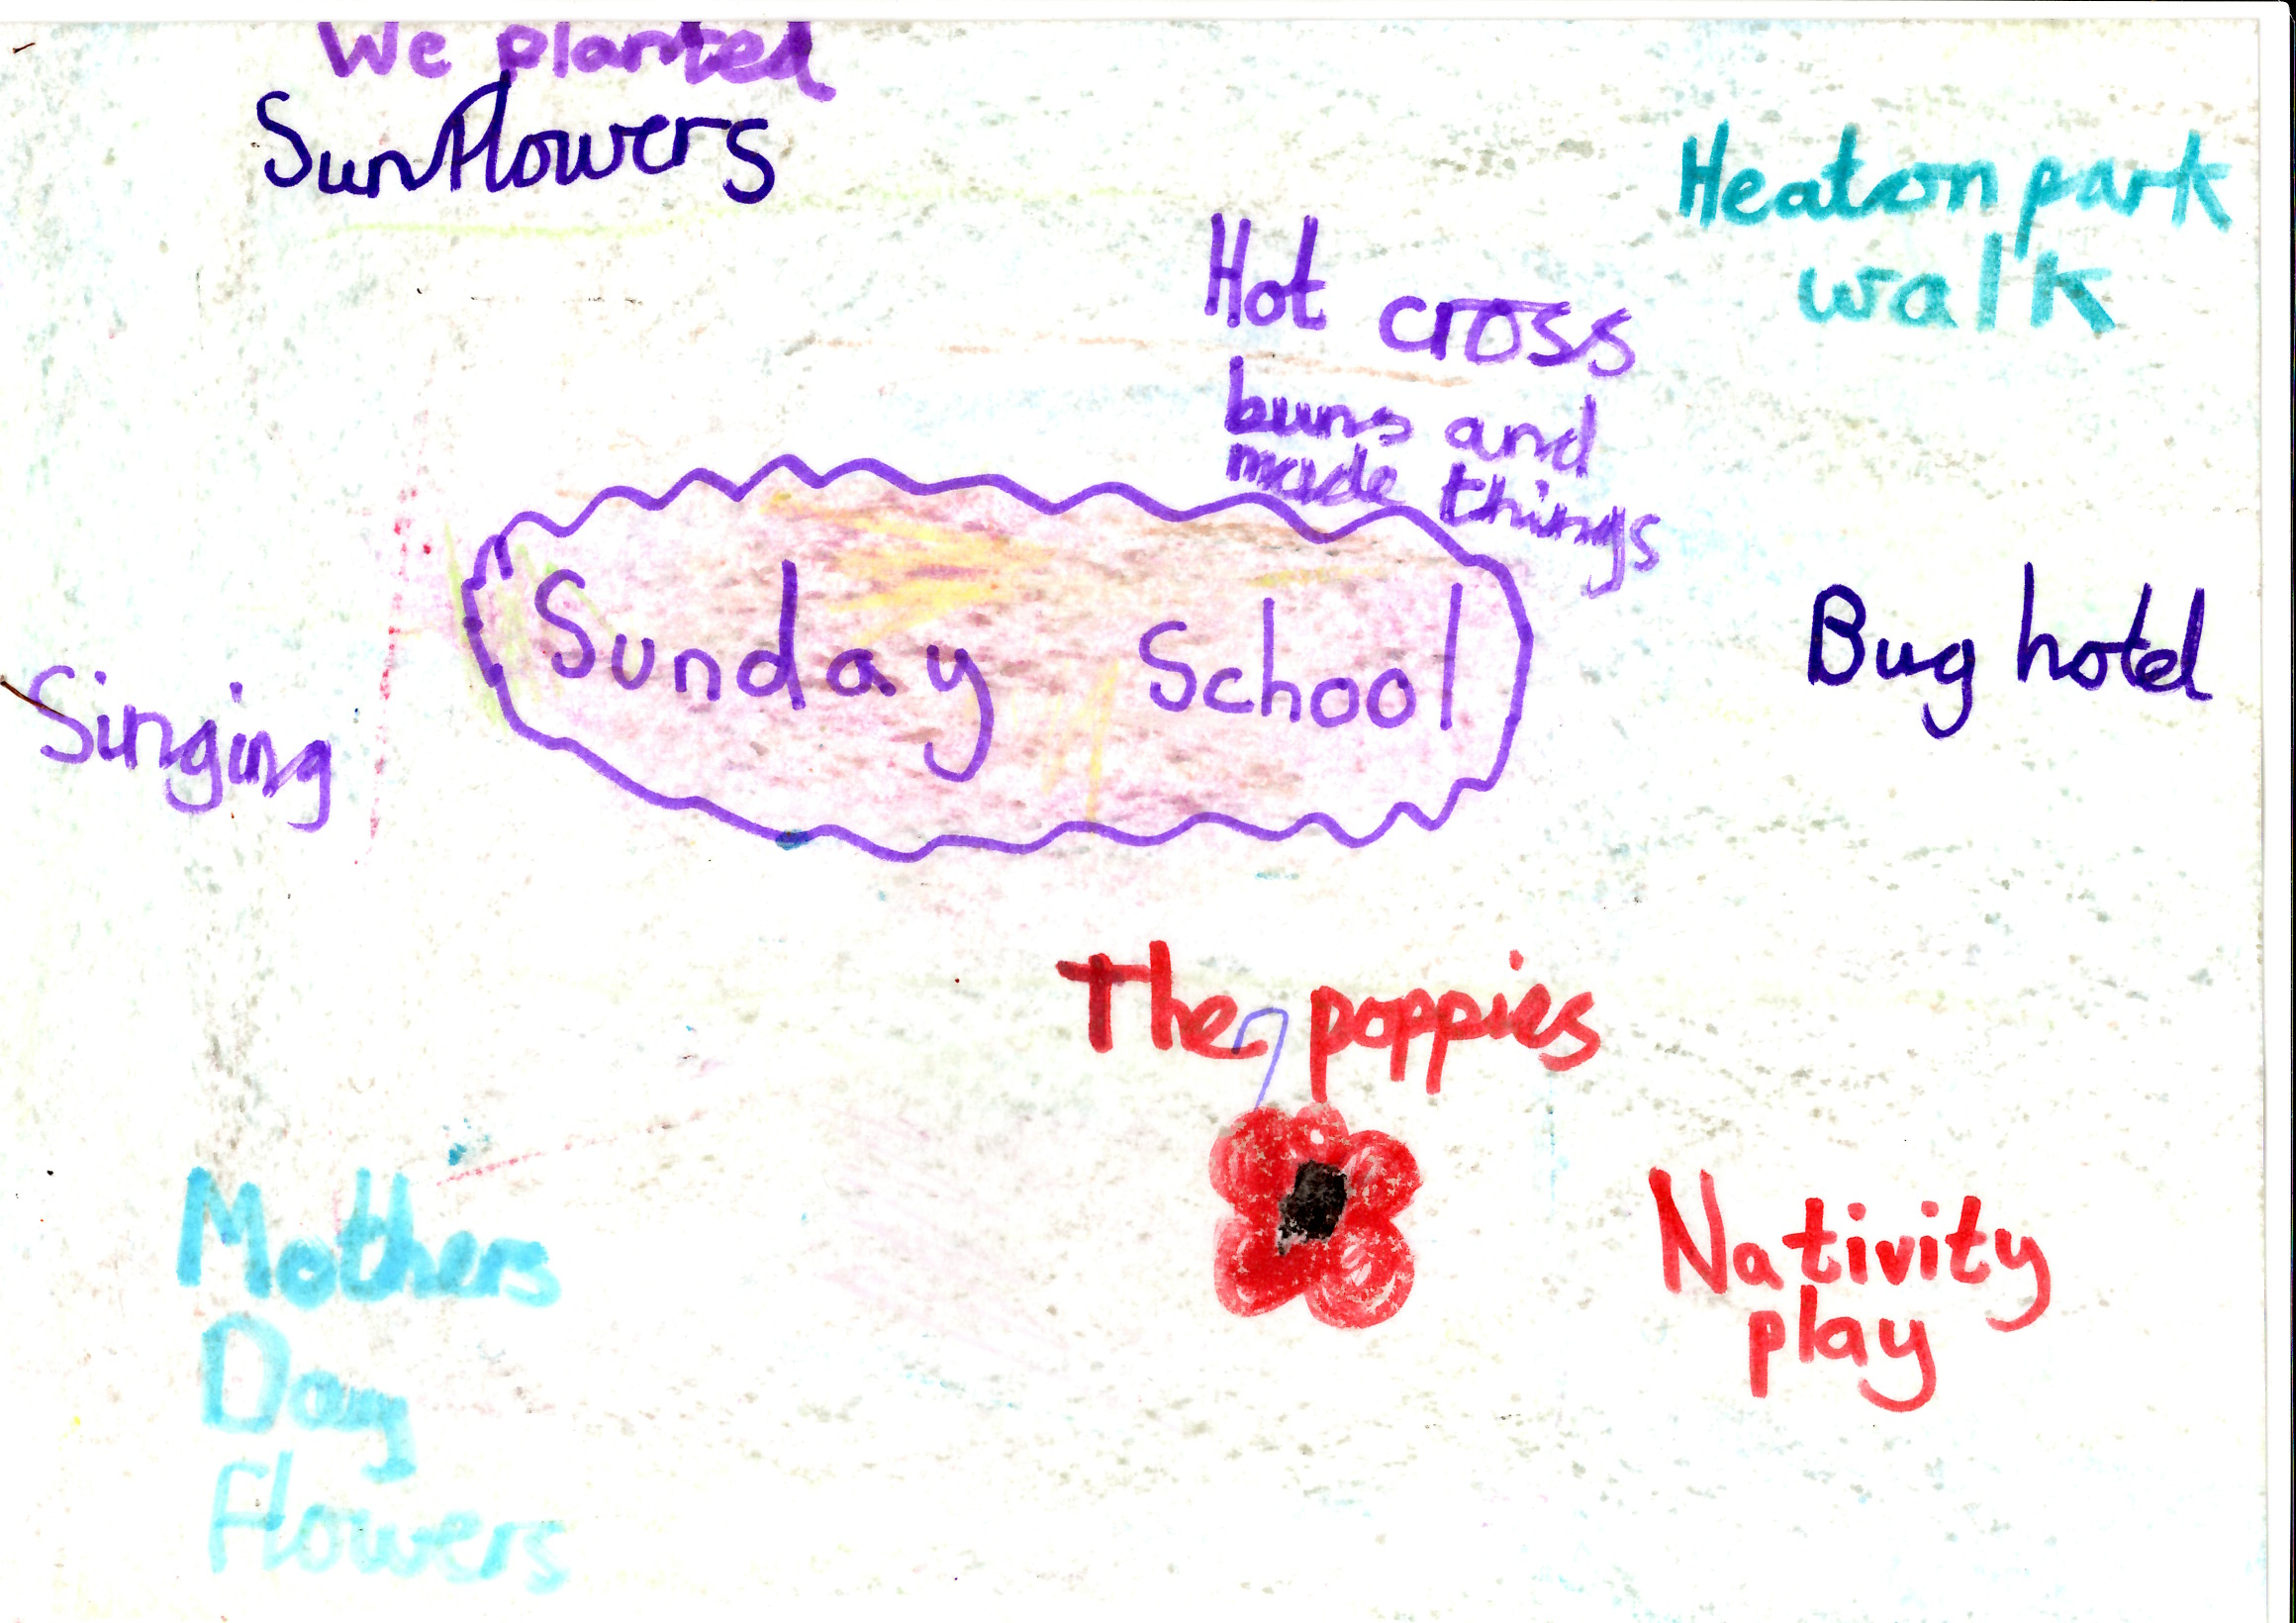 We planted
Sunflowers
Heaton park
walk
Hot cross
buns and
made things
Sunday School
Bug hotel
Singing
The poppies
Mothers
Day
Flowers
Nativity
play